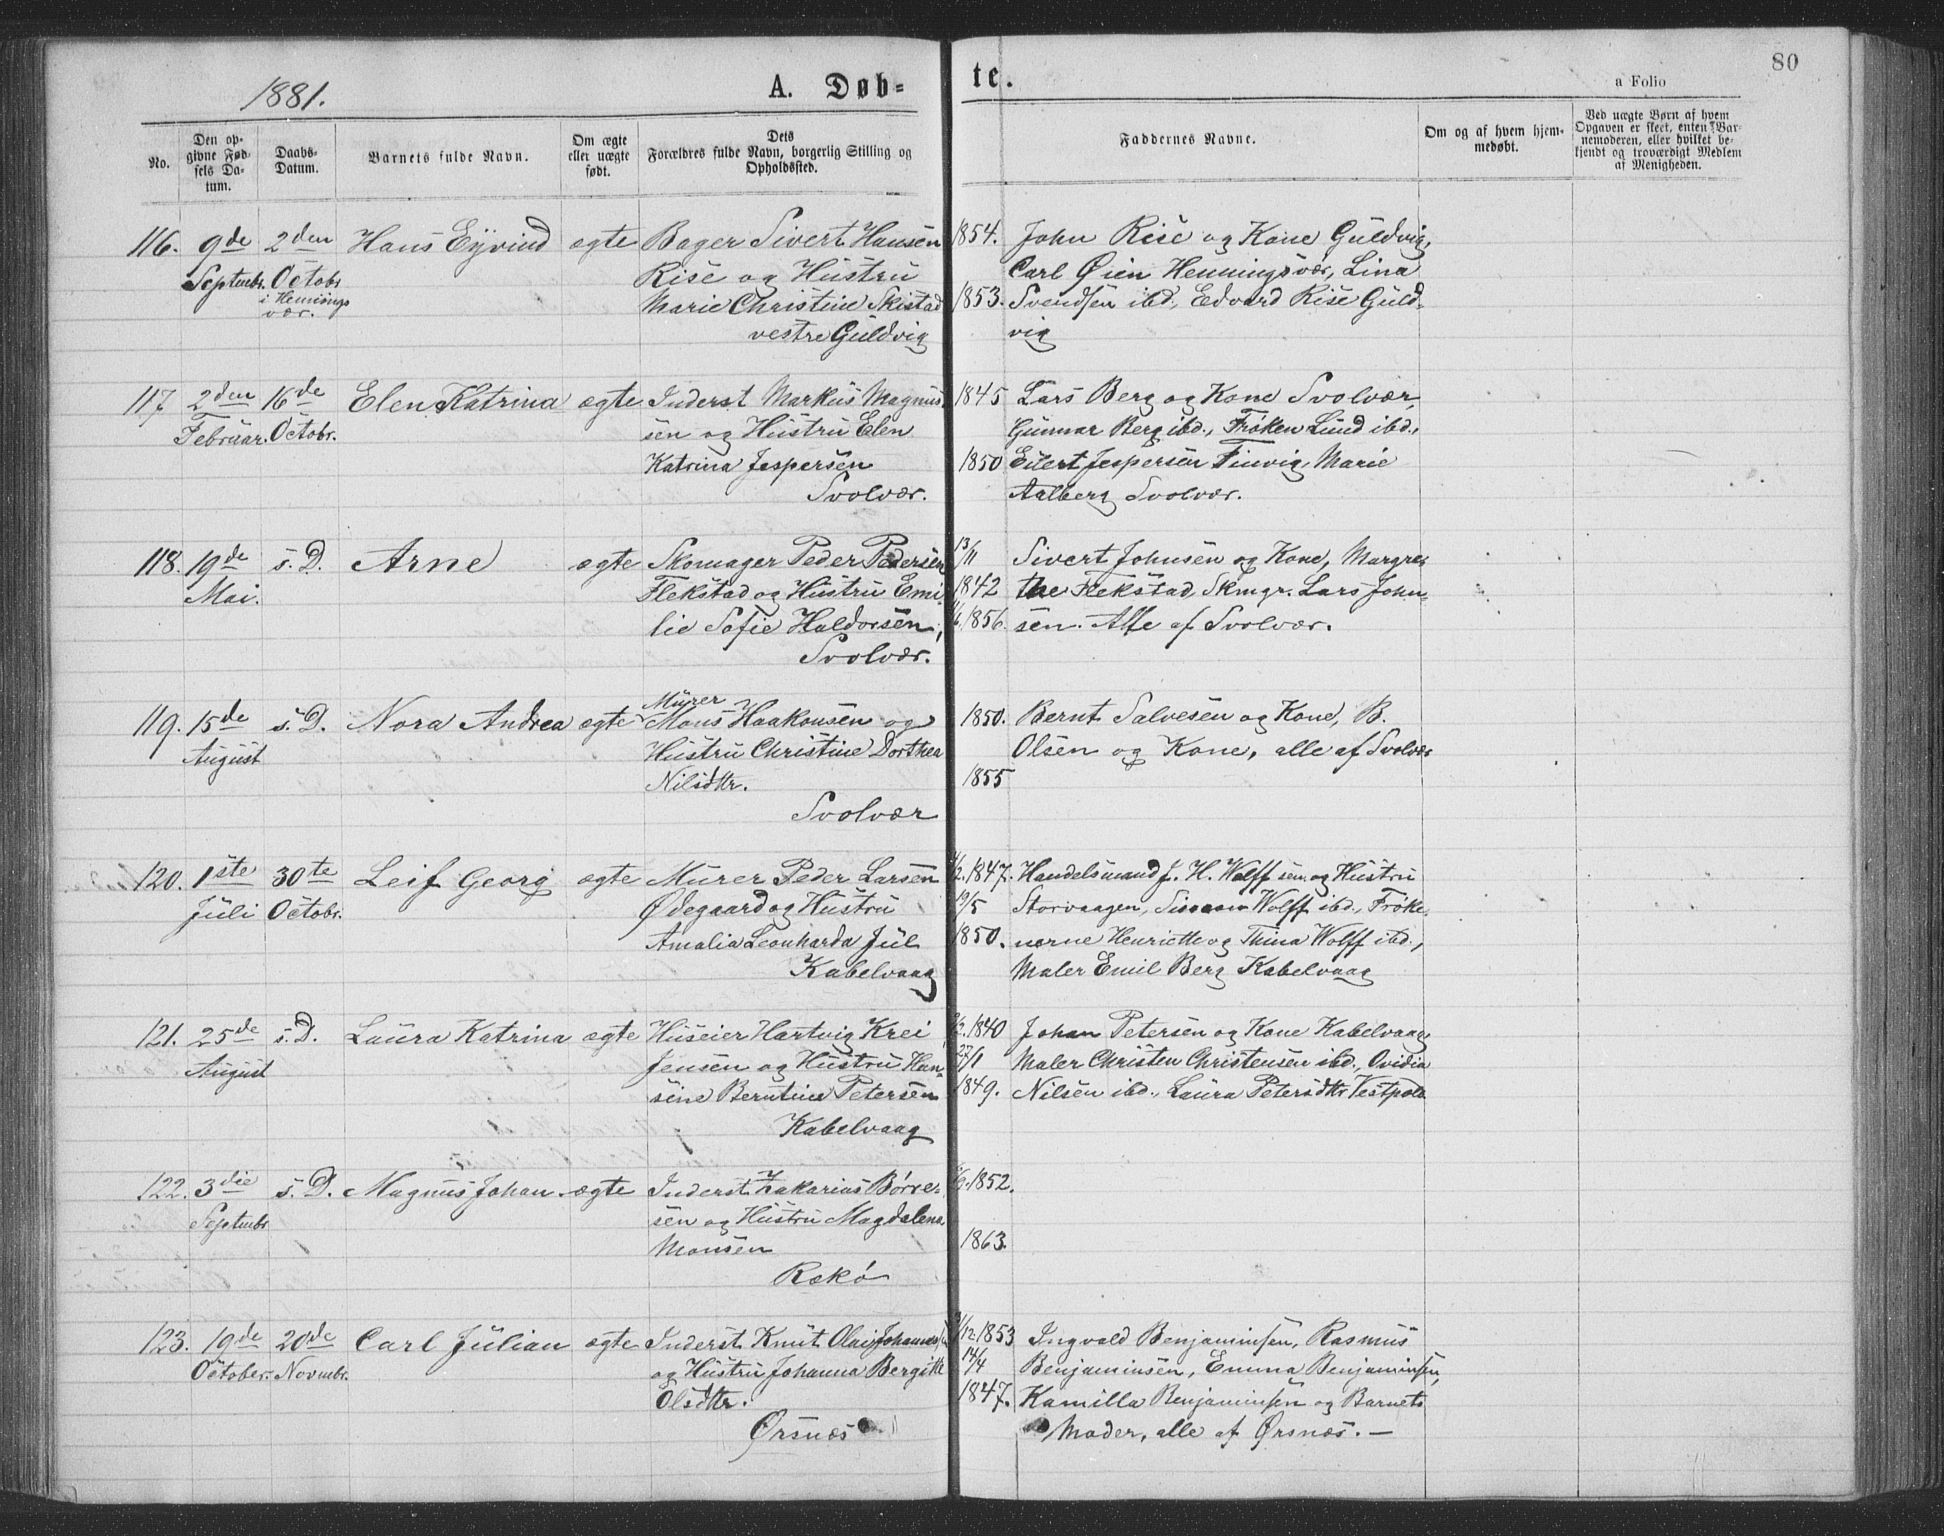 1881.
A. Døb=
te.
80
a Folio
No.
Den op-
givne Fød-
sels Da-
tum.
Daabs-
Datum.
Barnets fulde Navn.
Om ægte
eller uægte
født.
Dets
Forældres fulde Navn, borgerlig Stilling og
Opholdssted.
Faddernes Navne.
Om og af hvem hjem-
medøbt.
Ved uægte Børn af hvem
Opgaven er skeet, enten Bar-
nemoderen, eller hvilket be-
kjendt og troværdigt Medlem
af Menigheden.
116. 9de 2den Hans Eyvind ægte Bager Sivert Hansen 1854. John Rise og Kone Guldvig,
Septmbr. Octobr Rise og Hustru Carl Øien Henningsvær, Lina
i Hennings Marie Christine Skistad 1853. Svendsen ibd., Edvard Rise Guld-
vær. vestre Guldvig vig
117 2den 16de Elen Katrina ægte Inderst Markus Magnus 1845 Lars Berg og Kone Svolvær,
Februar. Octobr. sen og Hustru Elen Gunnar Berg ibd., Frøken Lund ibd.,
Katrina Jespersen 1850 Eilert Jespersen Finvig, Marie
Svolvær. Aalberg Svolvær.
118. 19de s. D. Arne ægte Skomager Peder Pedersen 13/11 Sivert Johnsen og Kone, Margre
Mai. Flekstad og Hustru Emi- 1842 the Flekstad, Skmgr. Lars John-
lie Sofie Haldorsen, 1856. sen. Alle af Svolvær.
Svolvær.
Murer
119. 15de s. D. Nora Andrea ægte Mons Haakonsen og 1850. Bernt Salvesen og Kone, B.
August Hustru Christine Dorthea Olsen og Kone, alle af Svolvær
Nilsdtr. 1855
Svolvær
120. 1ste 30te Leif Georg ægte Murer Peder Larsen 1847. Handelsmand J. H. Wolff sen. og Hustru
Juli Octobr. Ødegaard og Hustru 19/5 Storvaagen, Wolff ibd., Frøke-
Amalia Leonharda Jul 1850. nerne Henriette og Thina Wolff ibd.,
Kabelvaag Maler Emil Berg Kabelvaag
121. 25de s. D. Laura Katrina ægte Huseier Hartvig Krei 1840 Johan Petersen og Kone Kabelvaag
August Jensen og Hustru Han- 27/1 Maler Christen Christensen ibd., Ovidia
sine Berntine Petersen 1849. Nilsen ibd., Laura Petersdtr Vestpold
Kabelvaag
122. 3die s. D. Magnus Johan ægte Inderst Zakarias Børre- 1852.
Septmbr sen og Hustru Magdalena
Monsen 1863.
Rækø
123. 19de 20de Carl Julian ægte Inderst Knut Olai Johannes 1853 Ingvald Benjaminsen, Rasmus
October. Novmbr. og Hustru Johanna Bergitte 14/4 Benjaminsen, Emma Benjaminsen,
Olsdtr. 1847. Kamilla Benjaminsen og Barnets
Ørsnæs Moder, alle af Ørsnæs. —